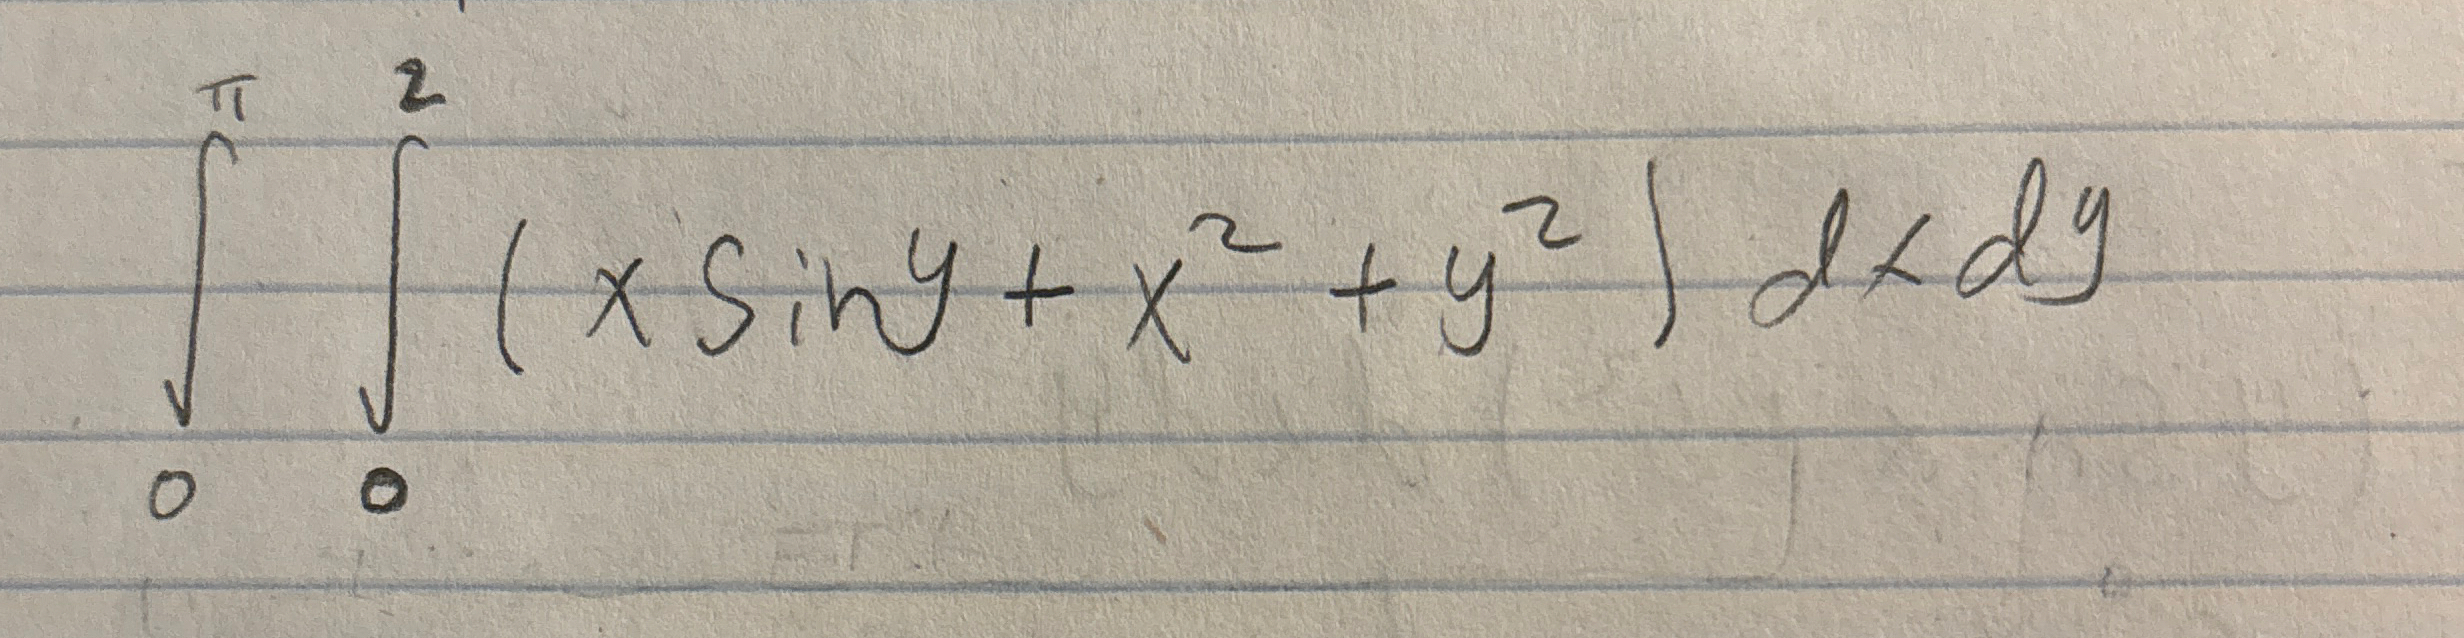 ∫₀^π ∫₀² (x sin y + x² + y²) dx dy